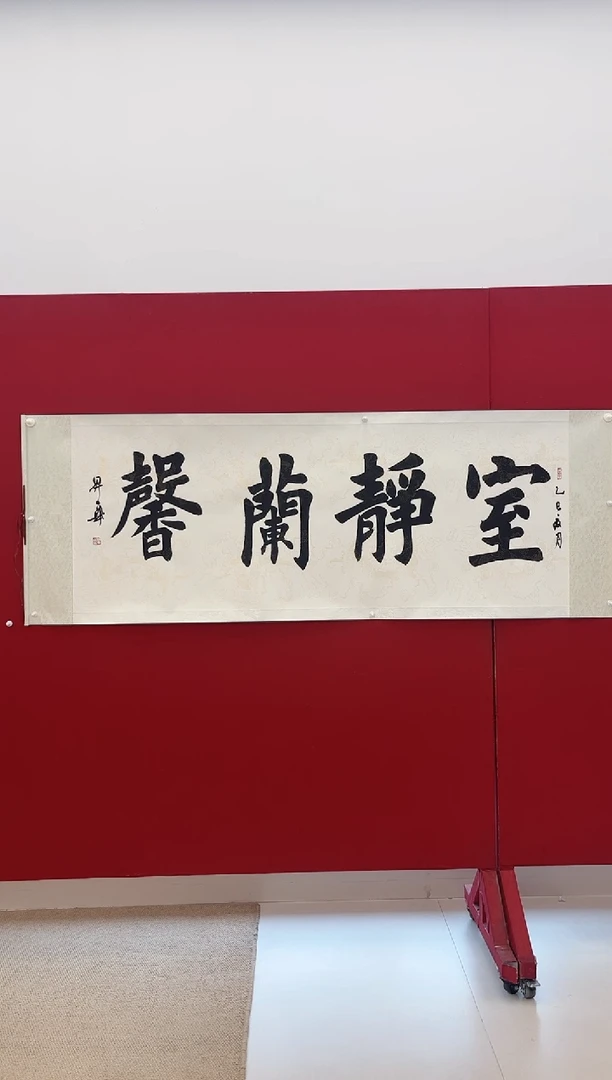 室靜蘭馨
乙巳